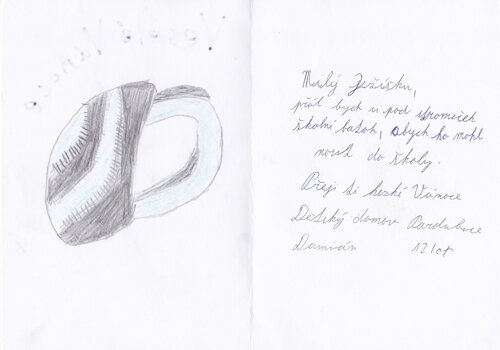 Veselé Vánoce
Milý Ježíšku,
přál bych si pod stromeček
školní batoh, abych ho mohl
nosit do školy.
Přeji ti hezké Vánoce
Dětský domov Pardubice
Damián 12 let